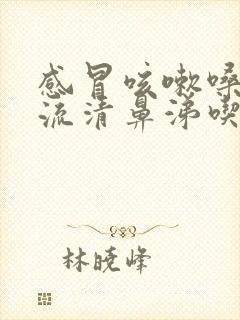 感冒咳嗽嗓
流清鼻涕喫
林晓峰